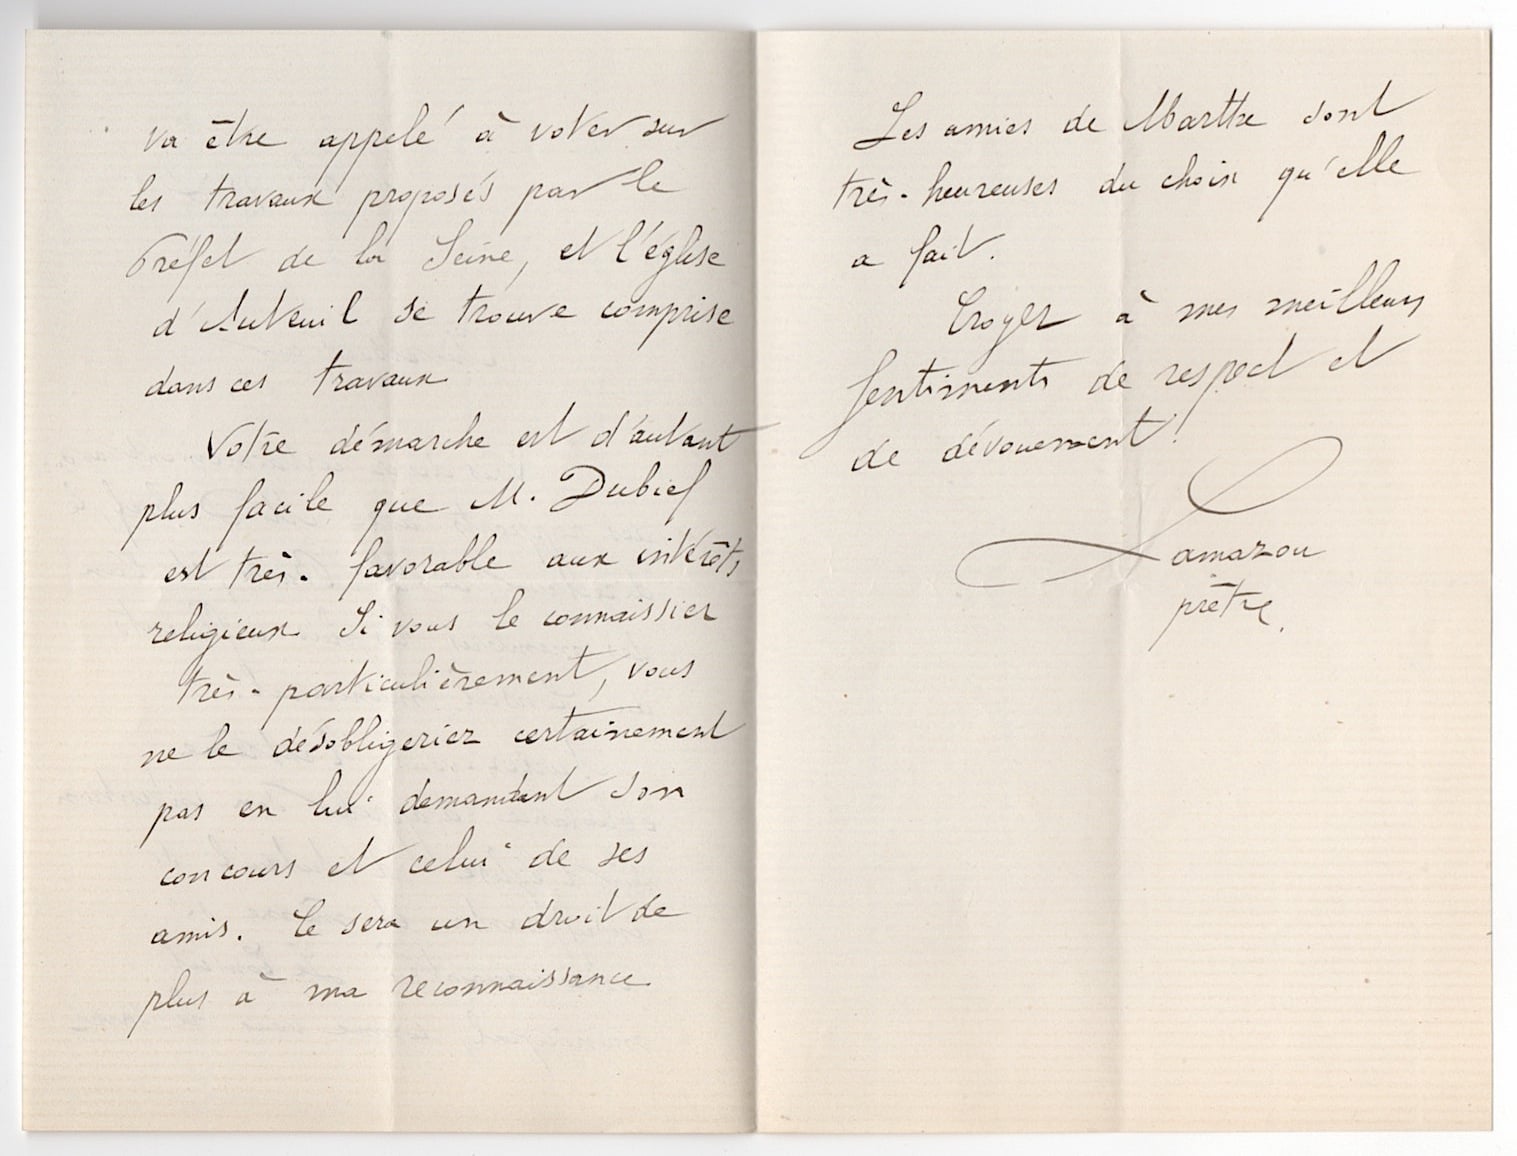 va être appelé à voter sur
les travaux proposés par le
Préfet de la Seine, et l'église
d'Auteuil se trouve comprise
dans ces travaux
Votre démarche est d'autant
plus facile que M. Dubief
est très-favorable aux intérêts
religieux Si vous le connaissiez
très-particulièrement, vous
ne le désobligeriez certainement
pas en lui demandant son
concours et celui de ses
amis. Ce sera un droit de
plus à ma reconnaissance
Les amies de Marthe sont
très-heureuses du choix qu'elle
a fait.
Croyez à mes meilleurs
sentiments de respect et
de dévouement!
Lamazou
prêtre.